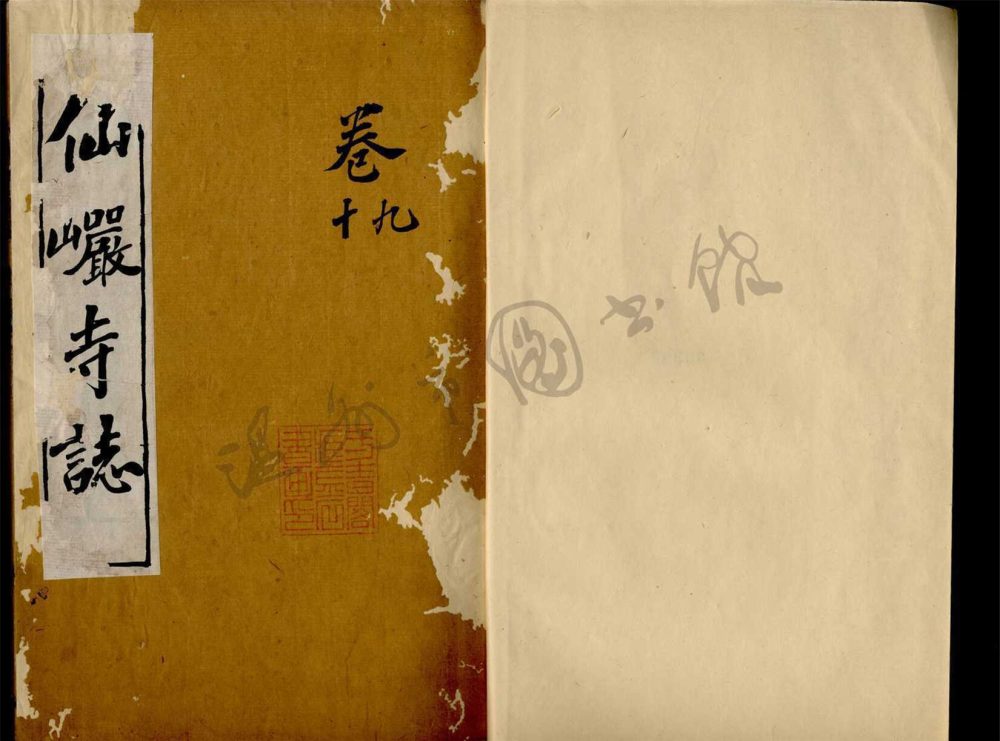 卷
九十
仙巗寺誌
温州市图书馆